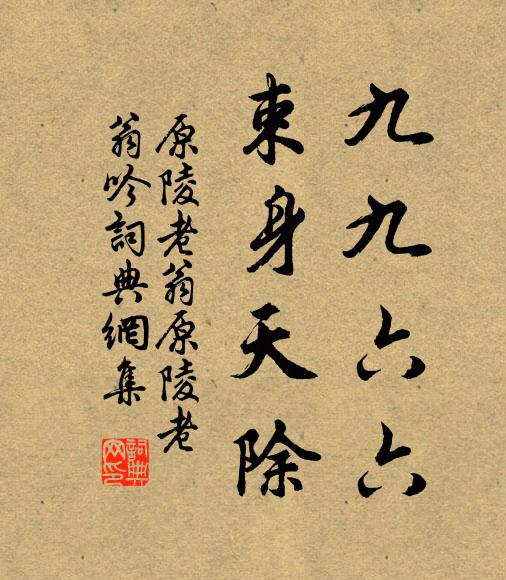 九九六六
束身天除
原陵老翁原陵老
翁吟詞典網集
詞典網印